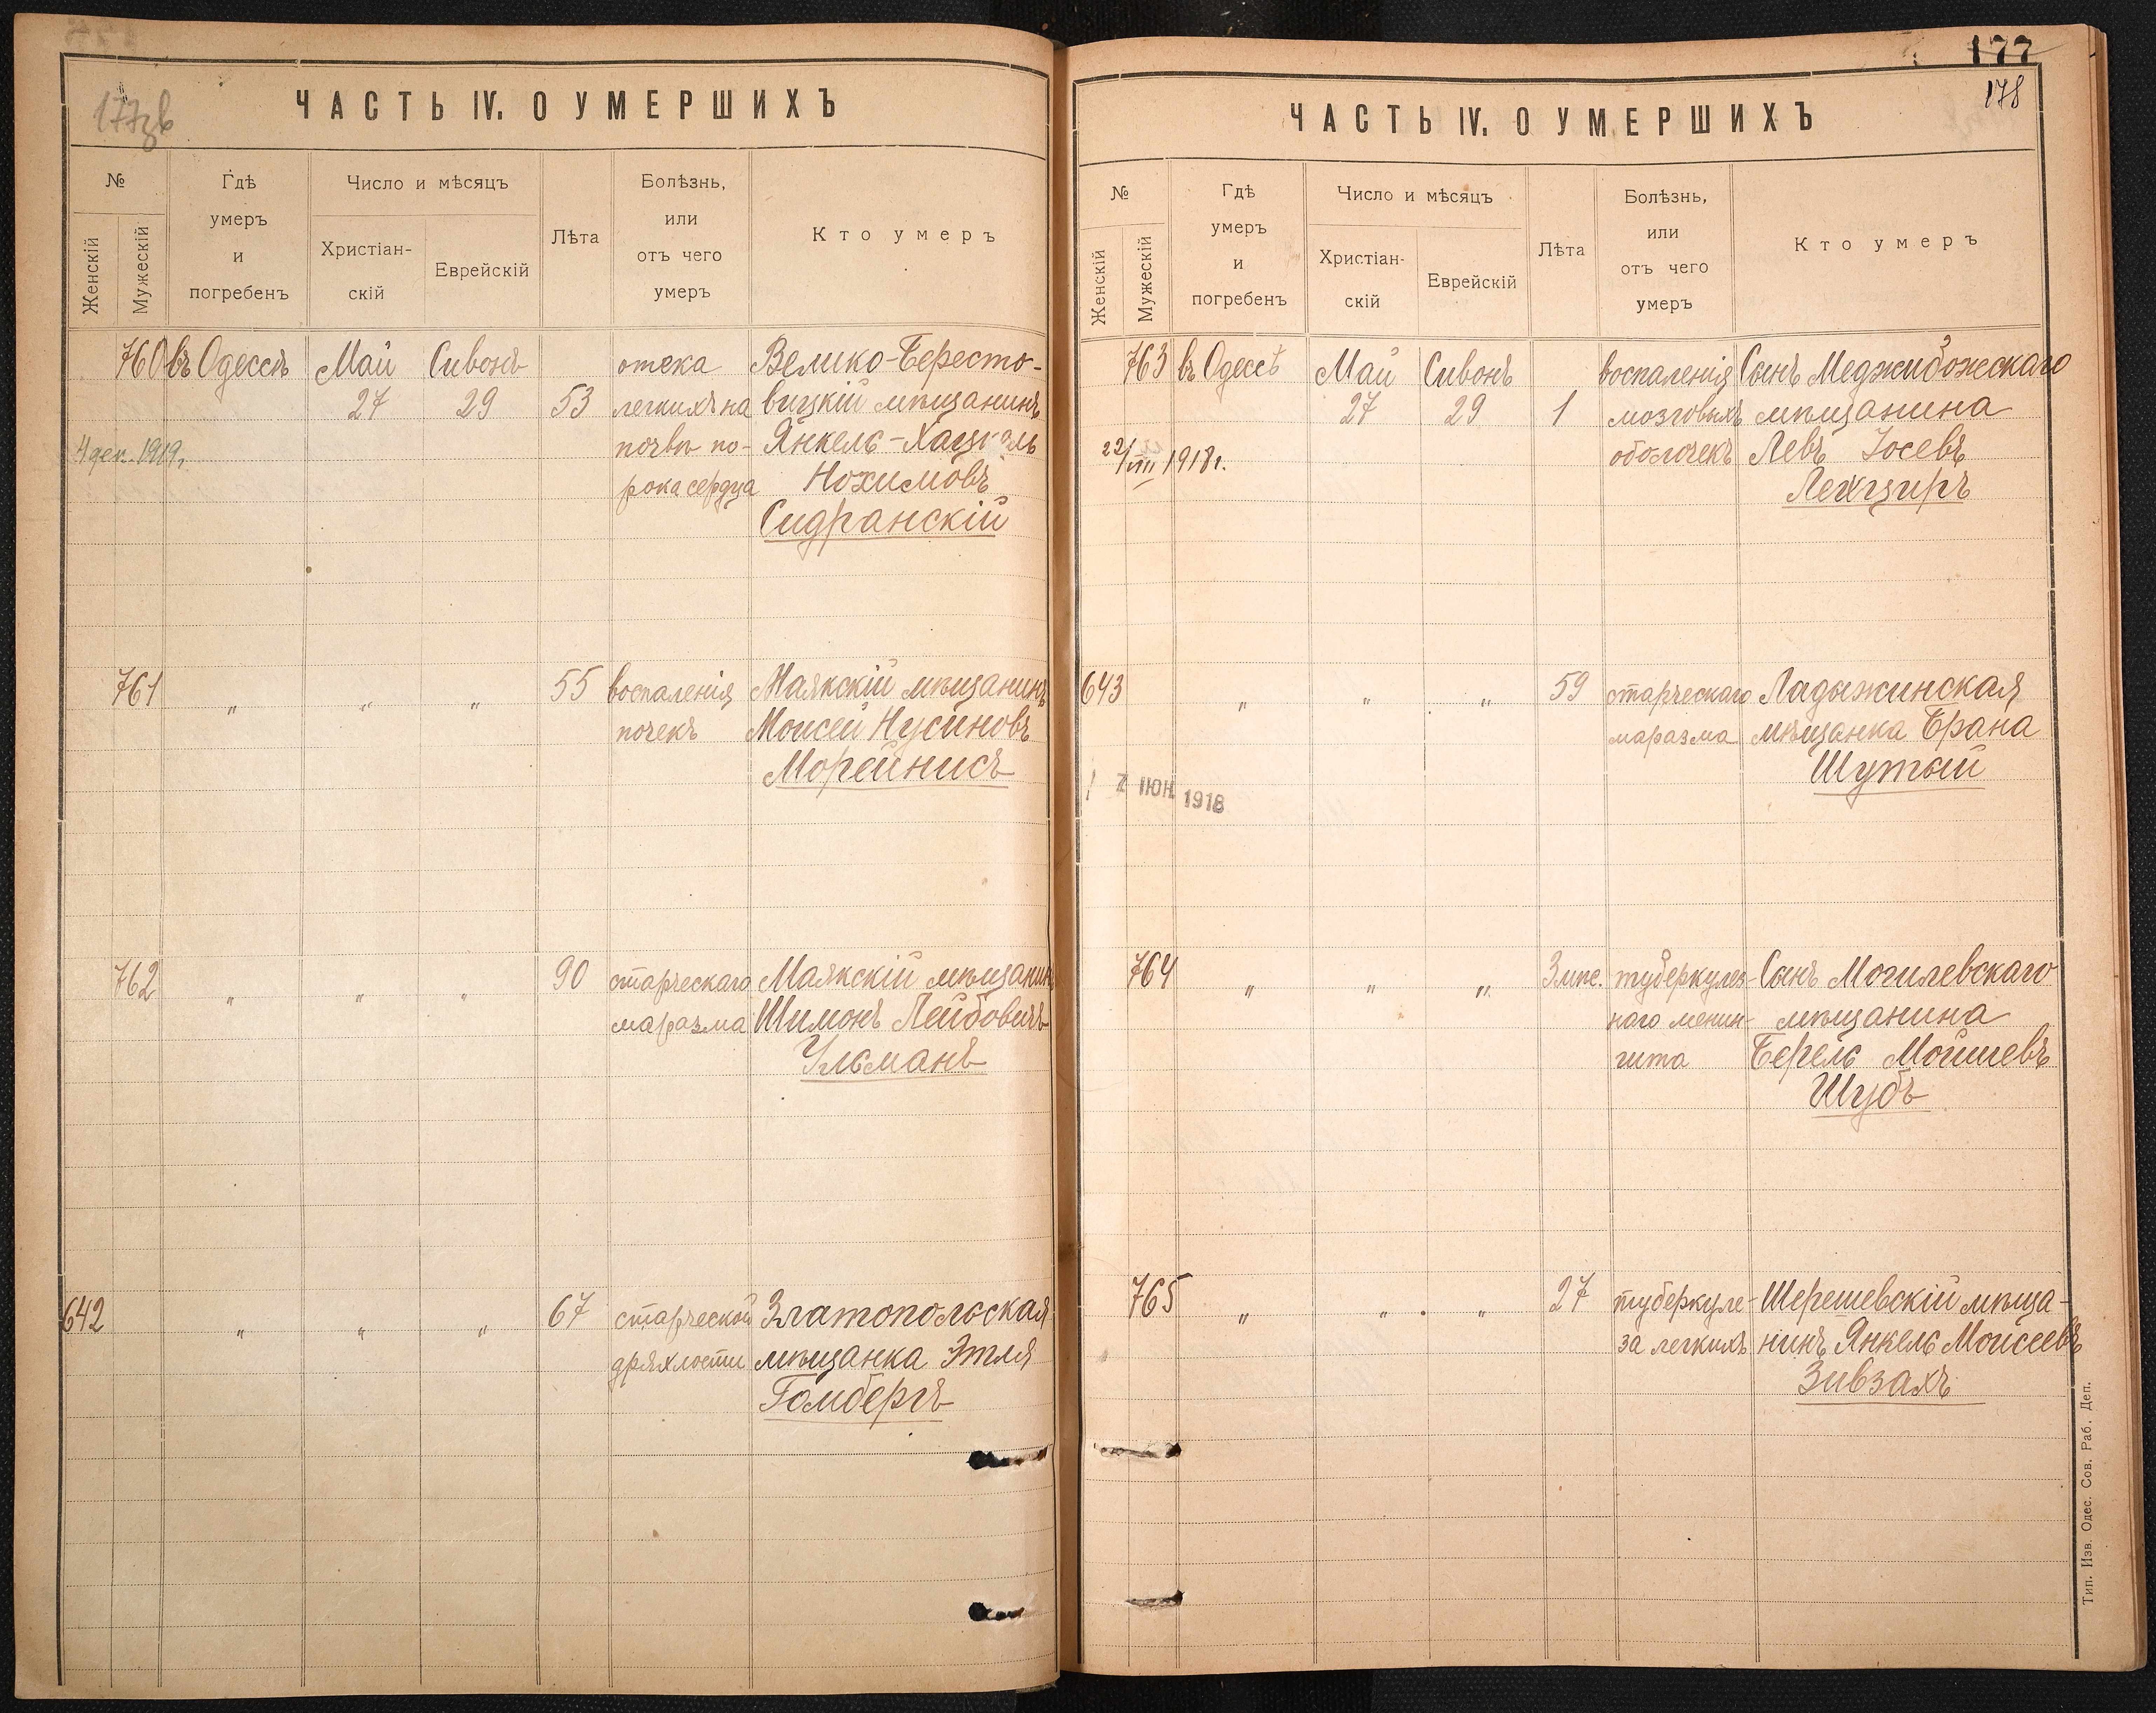 177зв
ЧАСТЬ IV. О УМЕРШИХЪ
№
Женскій
Мужескій
Гдѣ
умеръ
и
погребенъ
Число и мѣсяцъ
Христіан-
скій
Еврейскій
Лѣта
Болѣзнь,
или
отъ чего
умеръ
Кто умеръ
760 въ Одессѣ Май Сивонъ отека Велико-Бересто-
27 29 53 легкихъ на вицкій мѣщанинъ
4 деп. 1919г. почвѣ по- Янкель-Хацкель
рока сердца Нохимовъ
Сидранскій
761 " " " 55 воспаленія Маякскій мѣщанинъ
почекъ Моисей Нусиновъ
Морейнисъ
762 " " " 90 старческаго Маякскій мѣщанинъ
маразма Шимонъ Лейбовичъ
Ульманъ
642 " " " 67 старческой Златопольская
дряхлости мѣщанка Этля
Гомбергъ
177
178
ЧАСТЬ IV. О УМЕРШИХЪ
№
Женскій
Мужескій
Гдѣ
умеръ
и
погребенъ
Число и мѣсяцъ
Христіан-
скій
Еврейскій
Лѣта
Болѣзнь,
или
отъ чего
умеръ
Кто умеръ
763 въ Одессѣ Май Сивонъ воспаленія Сынъ Меджибожескаго
27 29 1 мозговыхъ мѣщанина
22/VIII 1918г. оболочекъ Левъ Іосевъ
Лехциръ
643 " " " 59 старческаго Ладыжинская
маразма мѣщанка Брана
Шутый
7 ІЮН 1918
764 " " " 3 мѣс. туберкулез- Сынъ Могилевскаго
наго менин- мѣщанина
гита Берель Мойшевъ
Шубъ
765 " " " 27 туберкуле- Шерешевскій мѣща-
за легкихъ нинъ Янкель Моисеевъ
Зивзахъ
Тип. Изв. Одес. Сов. Раб. Деп.